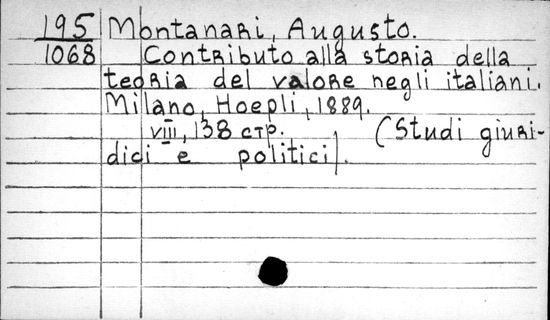 195 Montanari, Augusto.
1068 Contributo alla storia della
teoria del valore negli italiani.
Milano, Hoepli, 1889.
VIII, 138 стр. (Studi giuri-
dici e politici).